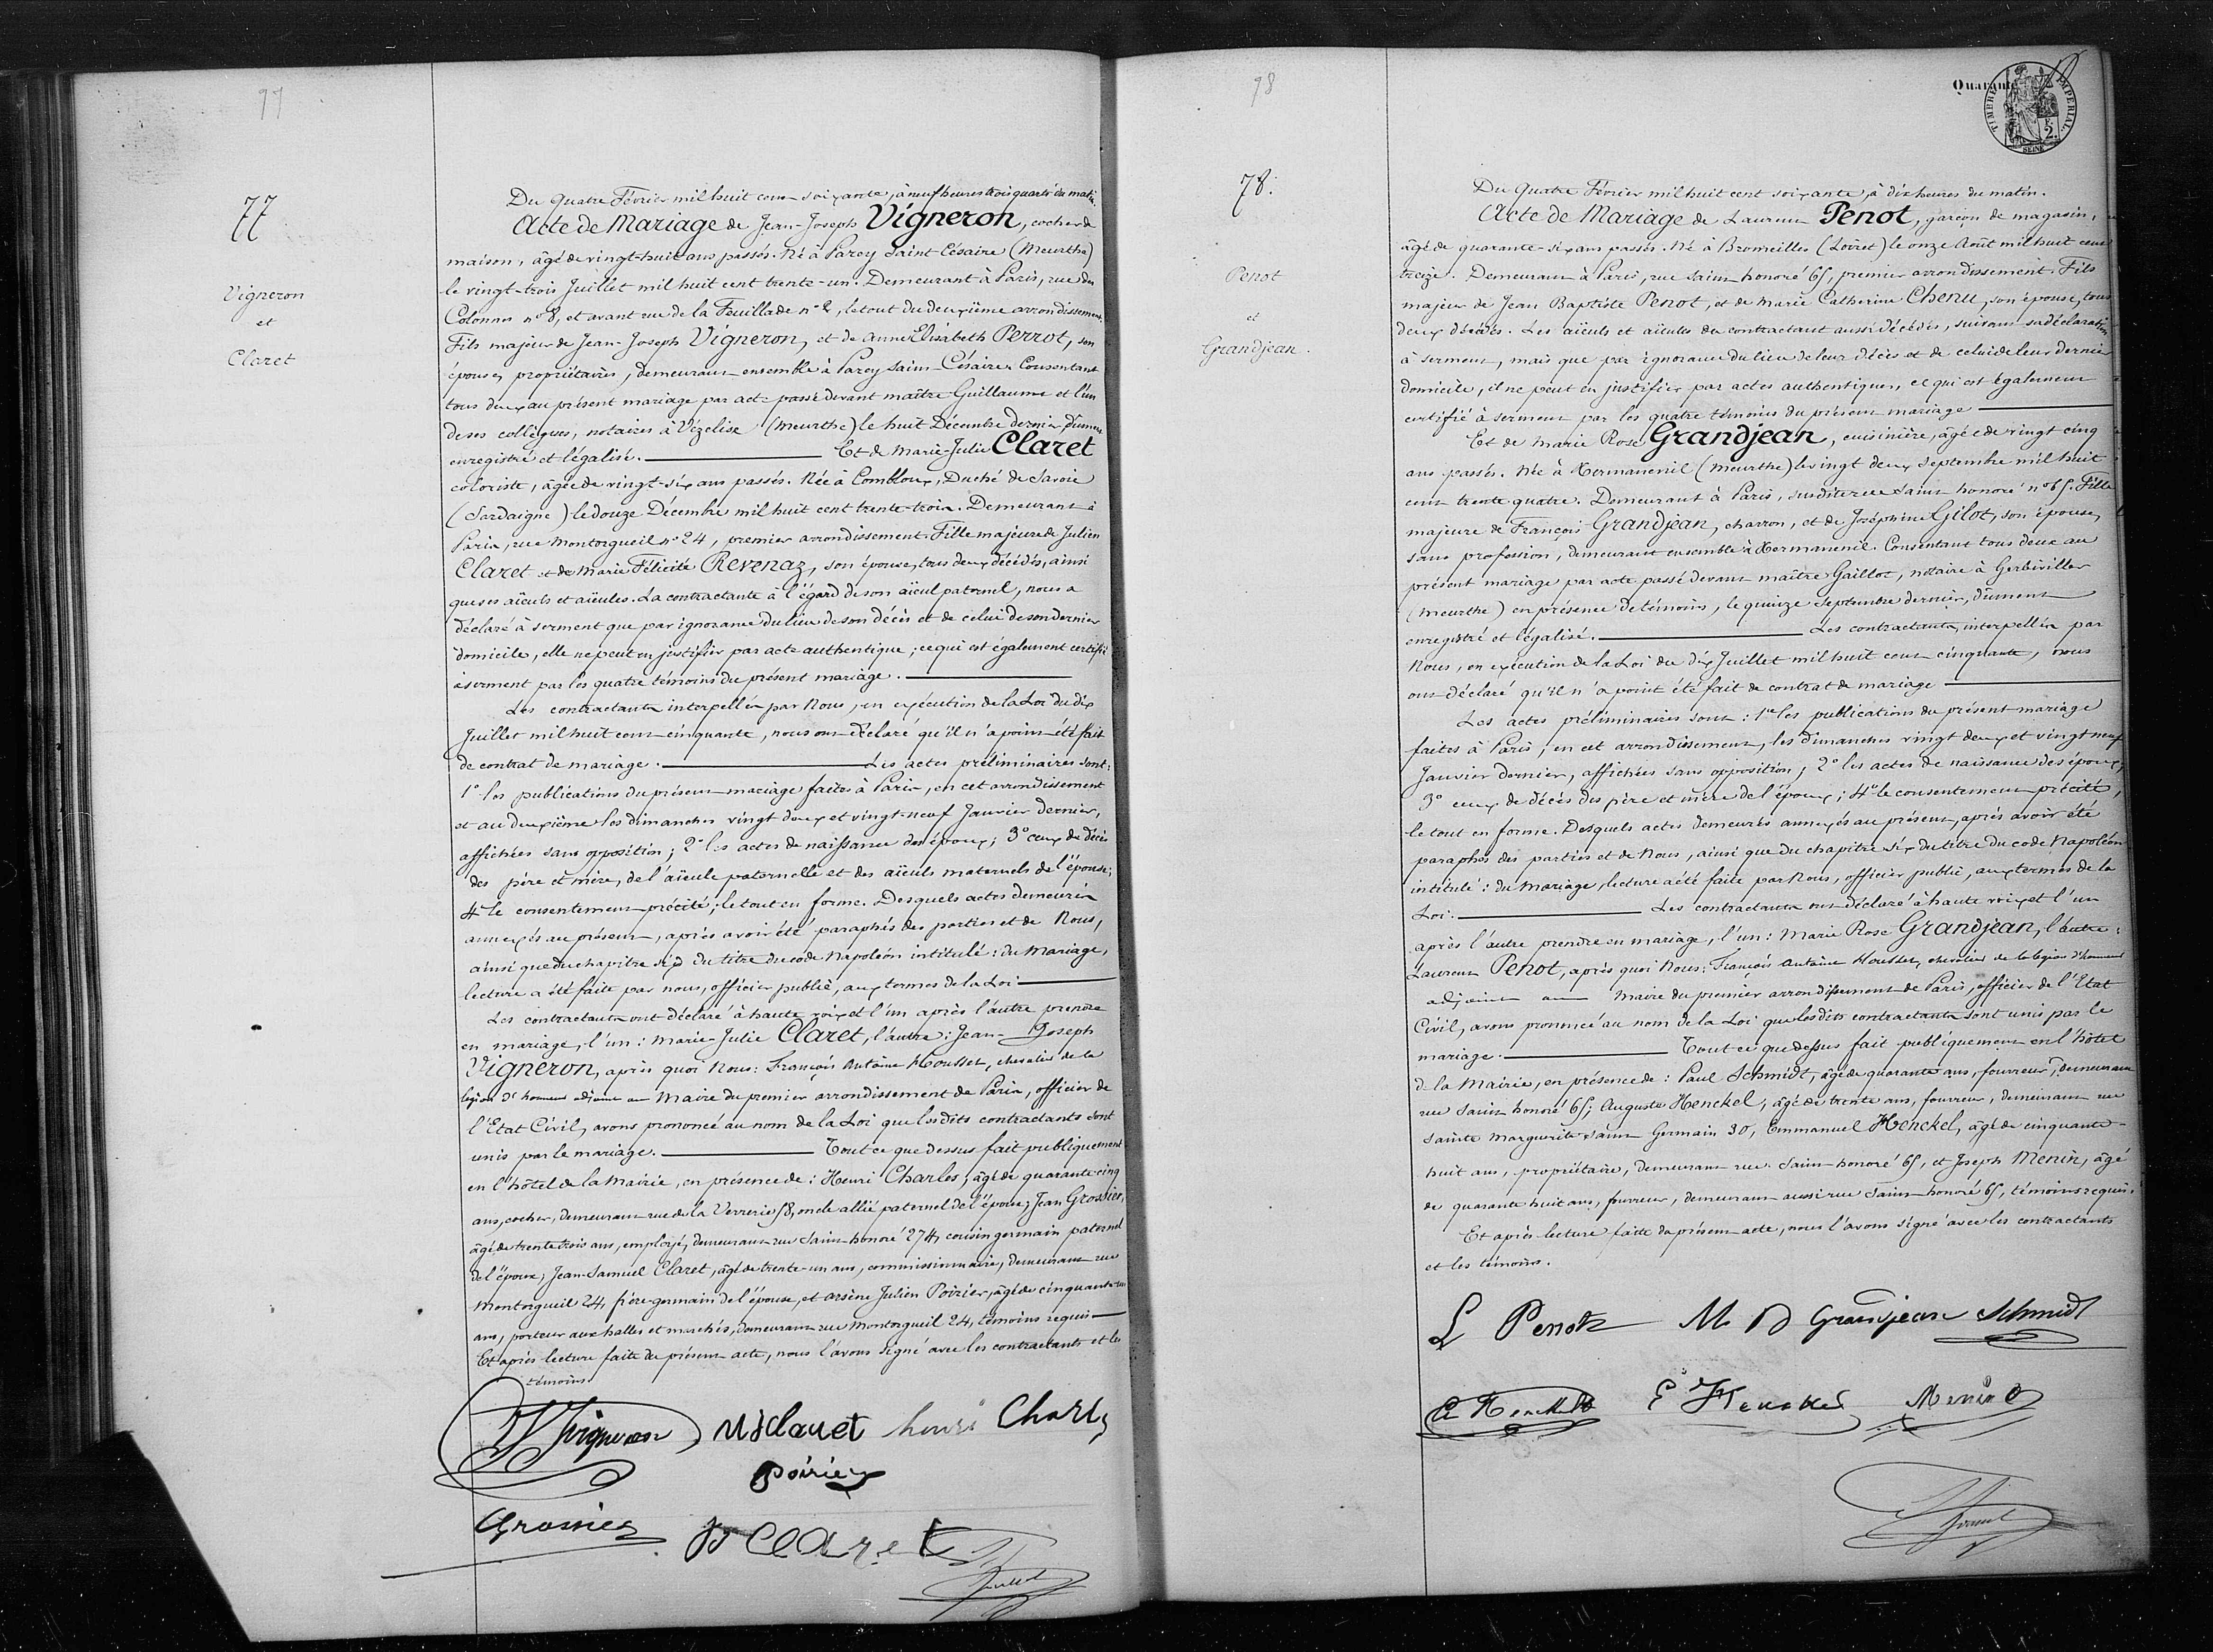 77
77
Vigneron
et
Claret
Du Quatre Février mil huit cent soixante, à neuf heures trois quarts du matin.
Acte de Mariage de Jean-Joseph Vigneron, cocher de
maison, âgé de vingt-huit ans passés. Né à Parey Saint Césaire (Meurthe)
le vingt-trois Juillet mil huit cent trente-un. Demeurant à Paris, rue des
Colonnes n° 8, et avant rue de la Feuillade n° 2, le tout du deuxième arrondissement.
Fils majeur de Jean-Joseph Vigneron, et de Anne Elisabeth Perrot, son
épouse, propriétaires, demeurant ensemble à Parey Saint-Césaire. Consentant
tous deux au présent mariage par acte passé devant maître Guillaume et l'un
de ses collègues, notaires à Vézelise (Meurthe) le huit Décembre dernier dûment
enregistré et légalisé. Et de Marie-Julie Claret
coloriste, âgée de vingt-six ans passés. Née à Combloux, Duché de Savoie
(Sardaigne) le douze Décembre mil huit cent trente-trois. Demeurant à
Paris, rue Montorgueil n° 24, premier arrondissement. Fille majeure de Julien
Claret et de Marie Félicité Revenaz, son épouse, tous deux décédés, ainsi
que ses aïeuls et aïeules. La contractante à l'égard de son aïeul paternel, nous a
déclaré à serment que par ignorance du lieu de son décès et de celui de son dernier
domicile, elle ne peut en justifier par acte authentique; ce qui est également certifié
à serment par les quatre témoins du présent mariage.
Les contractants interpellés par Nous, en exécution de la Loi du dix
Juillet mil huit cent cinquante, nous ont déclaré qu'il n'a point été fait
de contrat de mariage. Les actes préliminaires sont:
1° les publications du présent mariage faites à Paris, en cet arrondissement
et au deuxième les dimanches vingt deux et vingt-neuf Janvier dernier,
affichées sans opposition; 2° les actes de naissance des époux; 3° ceux de décès
des père et mère, de l'aïeule paternelle et des aïeuls maternels de l'épouse;
4° le consentement précité; le tout en forme. Desquels actes demeurés
annexés au présent, après avoir été paraphés des parties et de Nous,
ainsi que du chapitre six du titre du code Napoléon intitulé: du Mariage,
lecture a été faite par nous, officier public, aux termes de la Loi
Les contractants ont déclaré à haute voix et l'un après l'autre prendre
en mariage, l'un: Marie-Julie Claret, l'autre: Jean-Joseph
Vigneron, après quoi Nous: François Antoine Housset, chevalier de la
légion d'honneur adjoint au Maire du premier arrondissement de Paris, officier de
l'Etat Civil, avons prononcé au nom de la Loi que lesdits contractants sont
unis par le mariage. Tout ce que dessus fait publiquement
en l'hôtel de la Mairie, en présence de: Henri Charles, âgé de quarante cinq
ans, cocher, demeurant rue de la Verrerie 58, oncle allié paternel de l'époux; Jean Grossier,
âgé de trente trois ans, employé, demeurant rue Saint-honoré 274, cousin germain paternel
de l'époux; Jean-Samuel Claret, âgé de trente-un ans, commissionnaire, demeurant rue
Montorgueil 24, frère germain de l'épouse, et Arsène Julien Poirier, âgé de cinquante-un
ans, porteur aux halles et marchés, demeurant rue Montorgueil 24, témoins requis
Et après lecture faite du présent acte, nous l'avons signé avec les contractants et les
témoins
JJ Vigneron MJ Claret henri Charles
Poirier
Grossier JS Claret
78
78.
Penot
et
Grandjean.
Quarante
TIMBRE IMPERIAL
F. 2.
SEINE
Du Quatre Février mil huit cent soixante, à dix heures du matin.
Acte de Mariage de Laurent Penot, garçon de magasin,
âgé de quarante-six ans passés. Né à Bromeilles (Loiret) le onze Août mil huit cent
treize. Demeurant à Paris, rue Saint honoré 65, premier arrondissement. Fils
majeur de Jean Baptiste Penot, et de Marie Catherine Chenu, son épouse, tous
deux décédés. Les aïeuls et aïeules du contractant aussi décédés, suivant sa déclaration
à serment, mais que par ignorance du lieu de leur décès et de celui de leur dernier
domicile, il ne peut en justifier par actes authentiques, ce qui est également
certifié à serment par les quatre témoins du présent mariage
Et de Marie Rose Grandjean, cuisinière, âgée de vingt cinq
ans passés. Née à Xermaménil (Meurthe) le vingt deux Septembre mil huit
cent trente quatre. Demeurant à Paris, susdite rue Saint honoré n° 65. Fille
majeure de François Grandjean, charron, et de Joséphine Gilot, son épouse,
sans profession, demeurant ensemble à Xermaménil. Consentant tous deux au
présent mariage par acte passé devant maître Gaillot, notaire à Gerbéviller
(Meurthe) en présence de témoins, le quinze Septembre dernier, dûment
enregistré et légalisé. Les contractants, interpellés par
Nous, en exécution de la Loi du dix Juillet mil huit cent cinquante, nous
ont déclaré qu'il n'a point été fait de contrat de mariage
Les actes préliminaires sont: 1° les publications du présent mariage
faites à Paris, en cet arrondissement, les dimanches vingt deux et vingt neuf
Janvier dernier, affichées sans opposition; 2° les actes de naissance des époux;
3° ceux de décès des père et mère de l'époux; 4° le consentement précité,
le tout en forme. Desquels actes demeurés annexés au présent, après avoir été
paraphés des parties et de Nous, ainsi que du chapitre six du titre du code Napoléon
intitulé: du Mariage, lecture a été faite par Nous, officier public, aux termes de la
Loi. Les contractants ont déclaré à haute voix et l'un
après l'autre prendre en mariage, l'un: Marie Rose Grandjean, l'autre:
Laurent Penot, après quoi Nous: François Antoine Housset, chevalier de la légion d'honneur
adjoint au Maire du premier arrondissement de Paris, officier de l'Etat
Civil, avons prononcé au nom de la Loi que lesdits contractants sont unis par le
mariage. Tout ce que dessus fait publiquement en l'hôtel
de la Mairie, en présence de: Paul Schmidt, âgé de quarante ans, fourreur, demeurant
rue Saint honoré 65; Auguste Henckel, âgé de trente ans, fourreur, demeurant rue
Sainte Marguerite Saint Germain 30, Emmanuel Henckel, âgé de cinquante-
huit ans, propriétaire, demeurant rue Saint-honoré 65, et Joseph Menin, âgé
de quarante huit ans, fourreur, demeurant aussi rue Saint-honoré 65, témoins requis.
Et après lecture faite du présent acte, nous l'avons signé avec les contractants
et les témoins.
L Penot M R Grandjean Schmidt
A Henckel E Henckel Menin